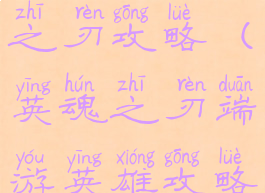 zhī rèn gōng lüè
之刃攻略（
yīng hún zhī rèn duān
英魂之刃端
yóu yīng xióng gōng lüè
游英雄攻略